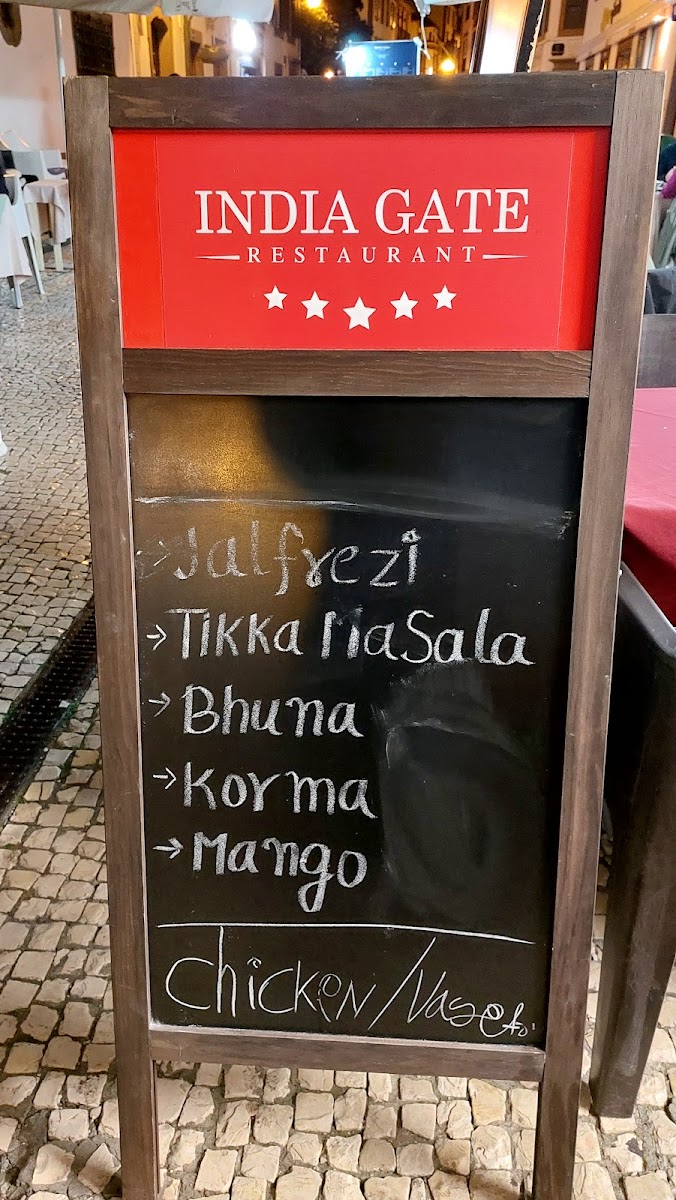 INDIA GATE
RESTAURANT
→ Jalfrezi
→ Tikka Masala
→ Bhuna
→ Korma
→ Mango
Chicken/